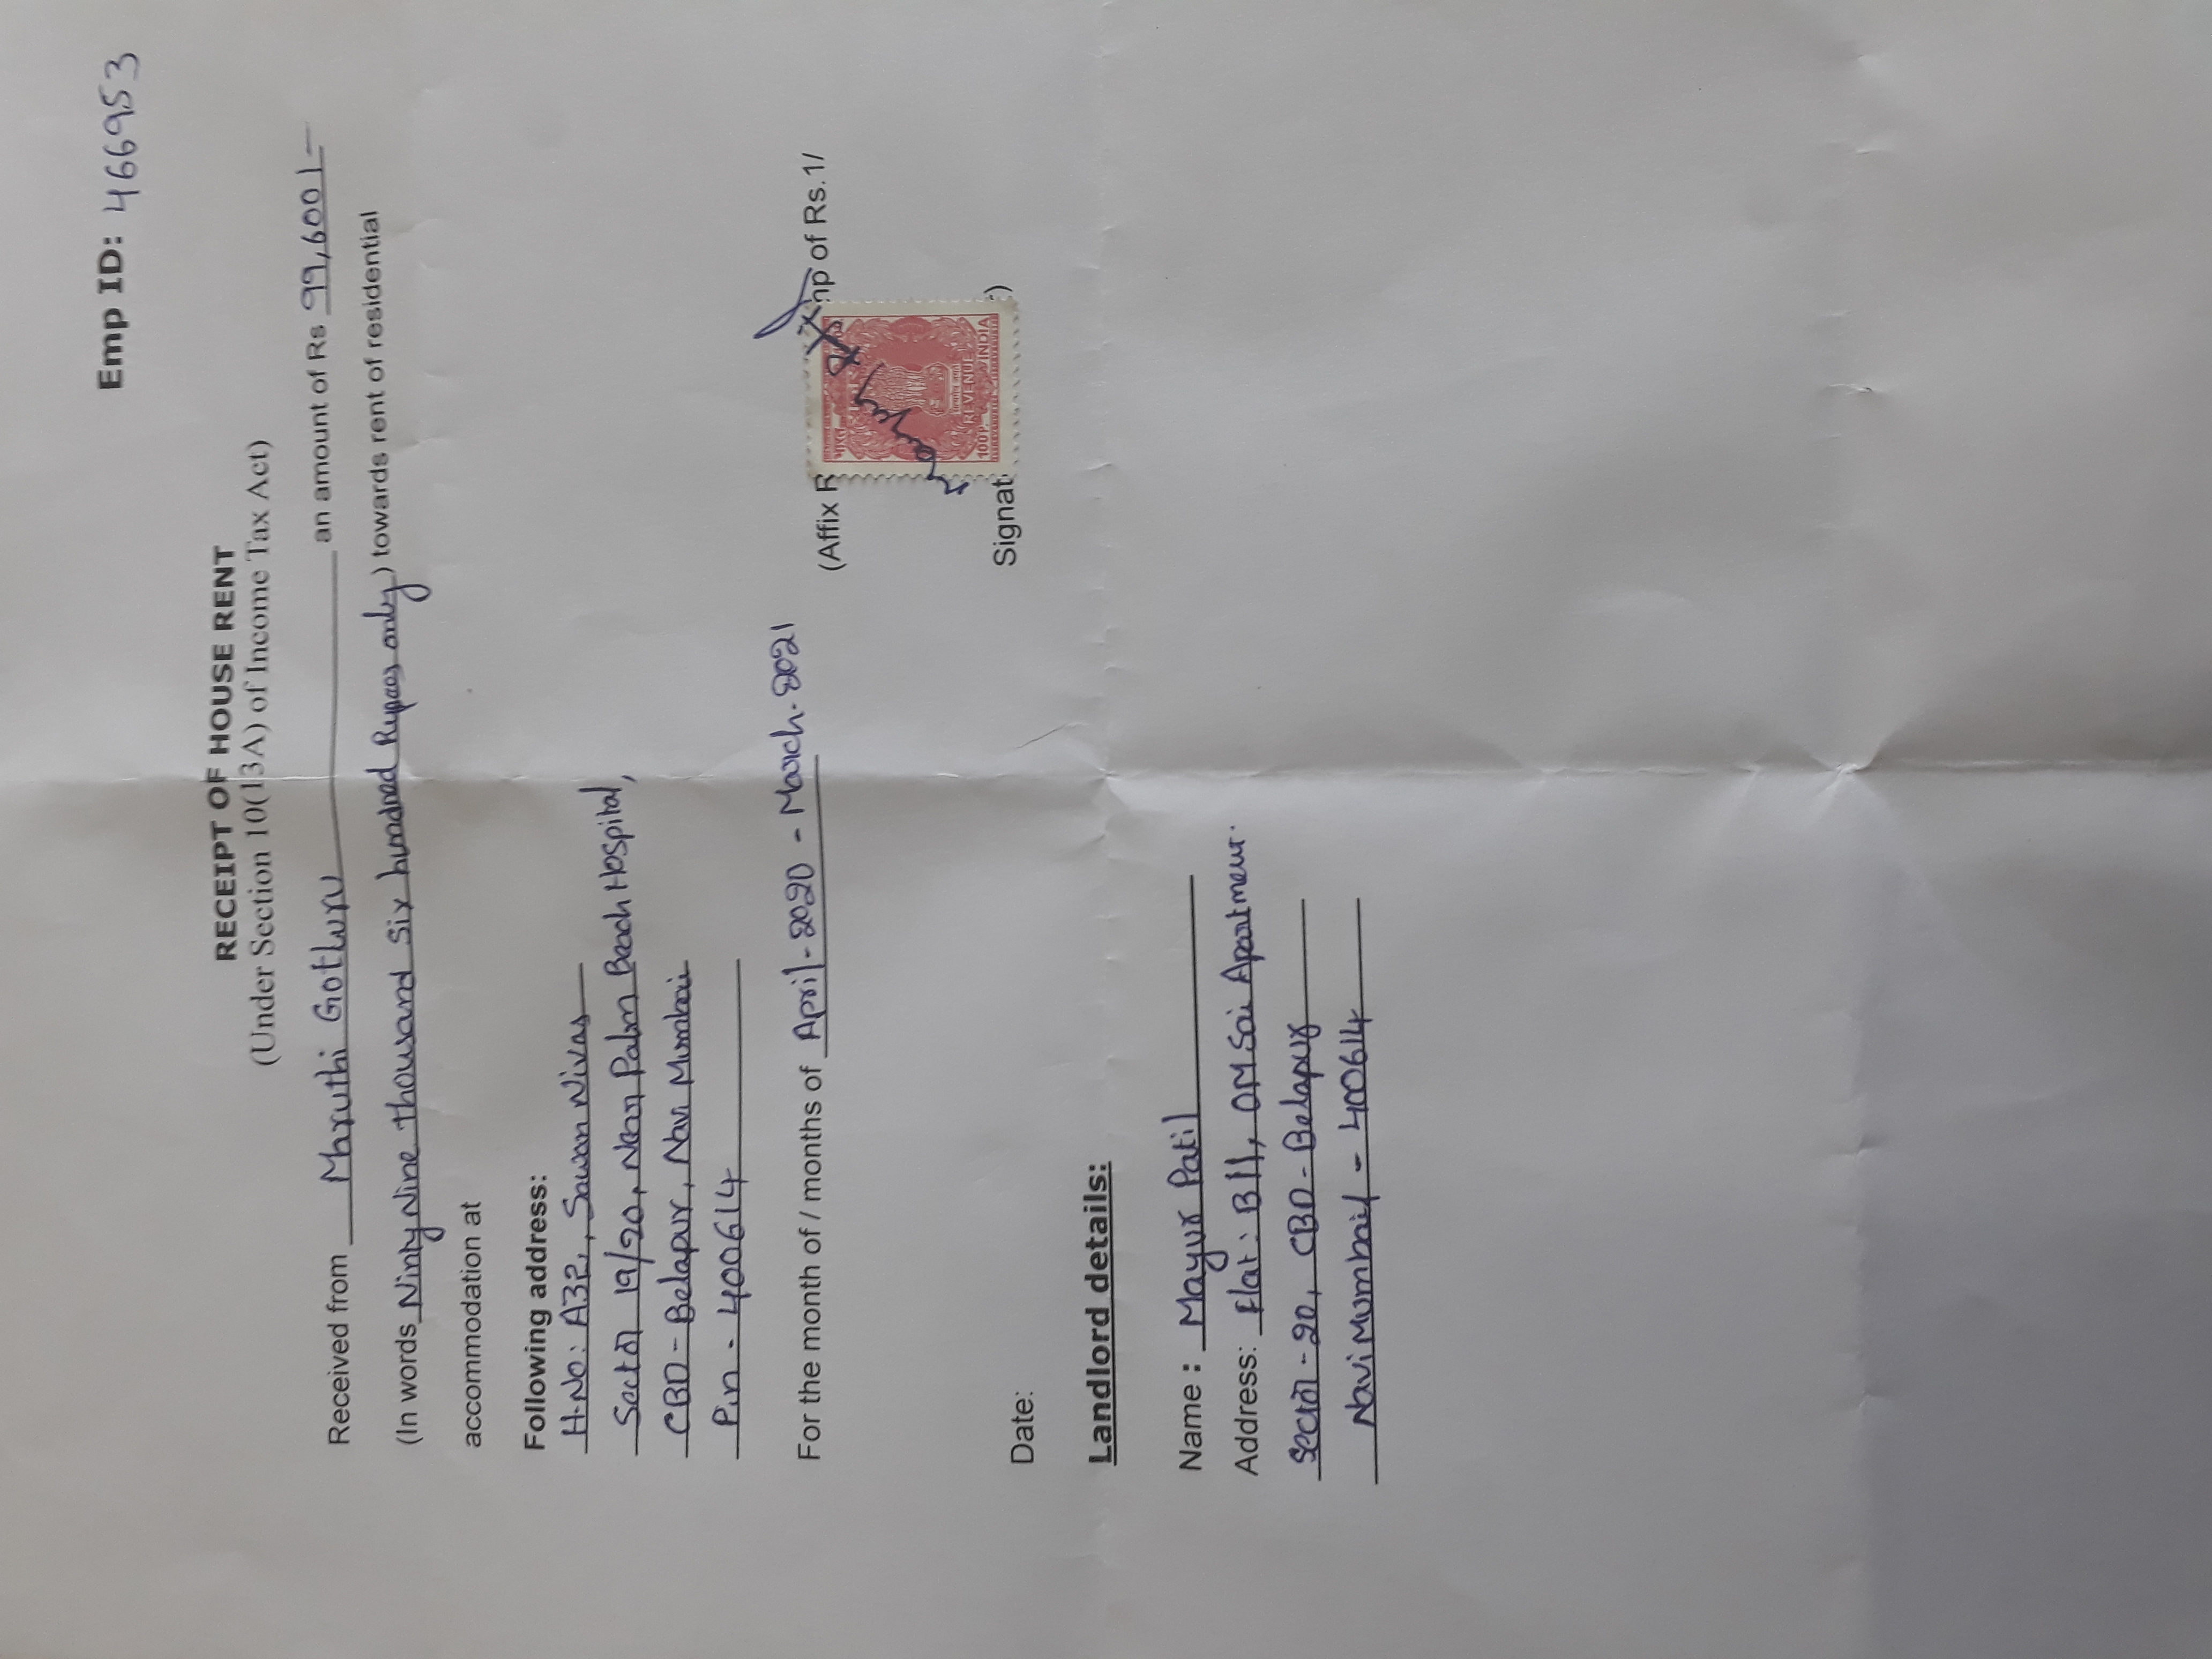 Emp ID: 466953
RECEIPT OF HOUSE RENT
(Under Section 10(13A) of Income Tax Act)
Received from Maruthi Gotluru an amount of Rs 99,600/-
(In words Ninty Nine thousand Six hundred Rupees only) towards rent of residential
accommodation at
Following address:
H.No: A32, Sawan Nivas
Sector 19/20, Near Palm Beach Hospital,
CBD - Belapur, Navi Mumbai
Pin - 400614
For the month of / months of April-2020 - March-2021
(Affix R mp of Rs.1/
भारत
Mayur Patil
सत्यमेव जयते
REVENUE
100P. INDIA
Signat )
Date:
Landlord details:
Name : Mayur Patil
Address: Flat: B11, OM Sai Apartment.
Sector-20, CBD - Belapur
Navi Mumbai - 400614